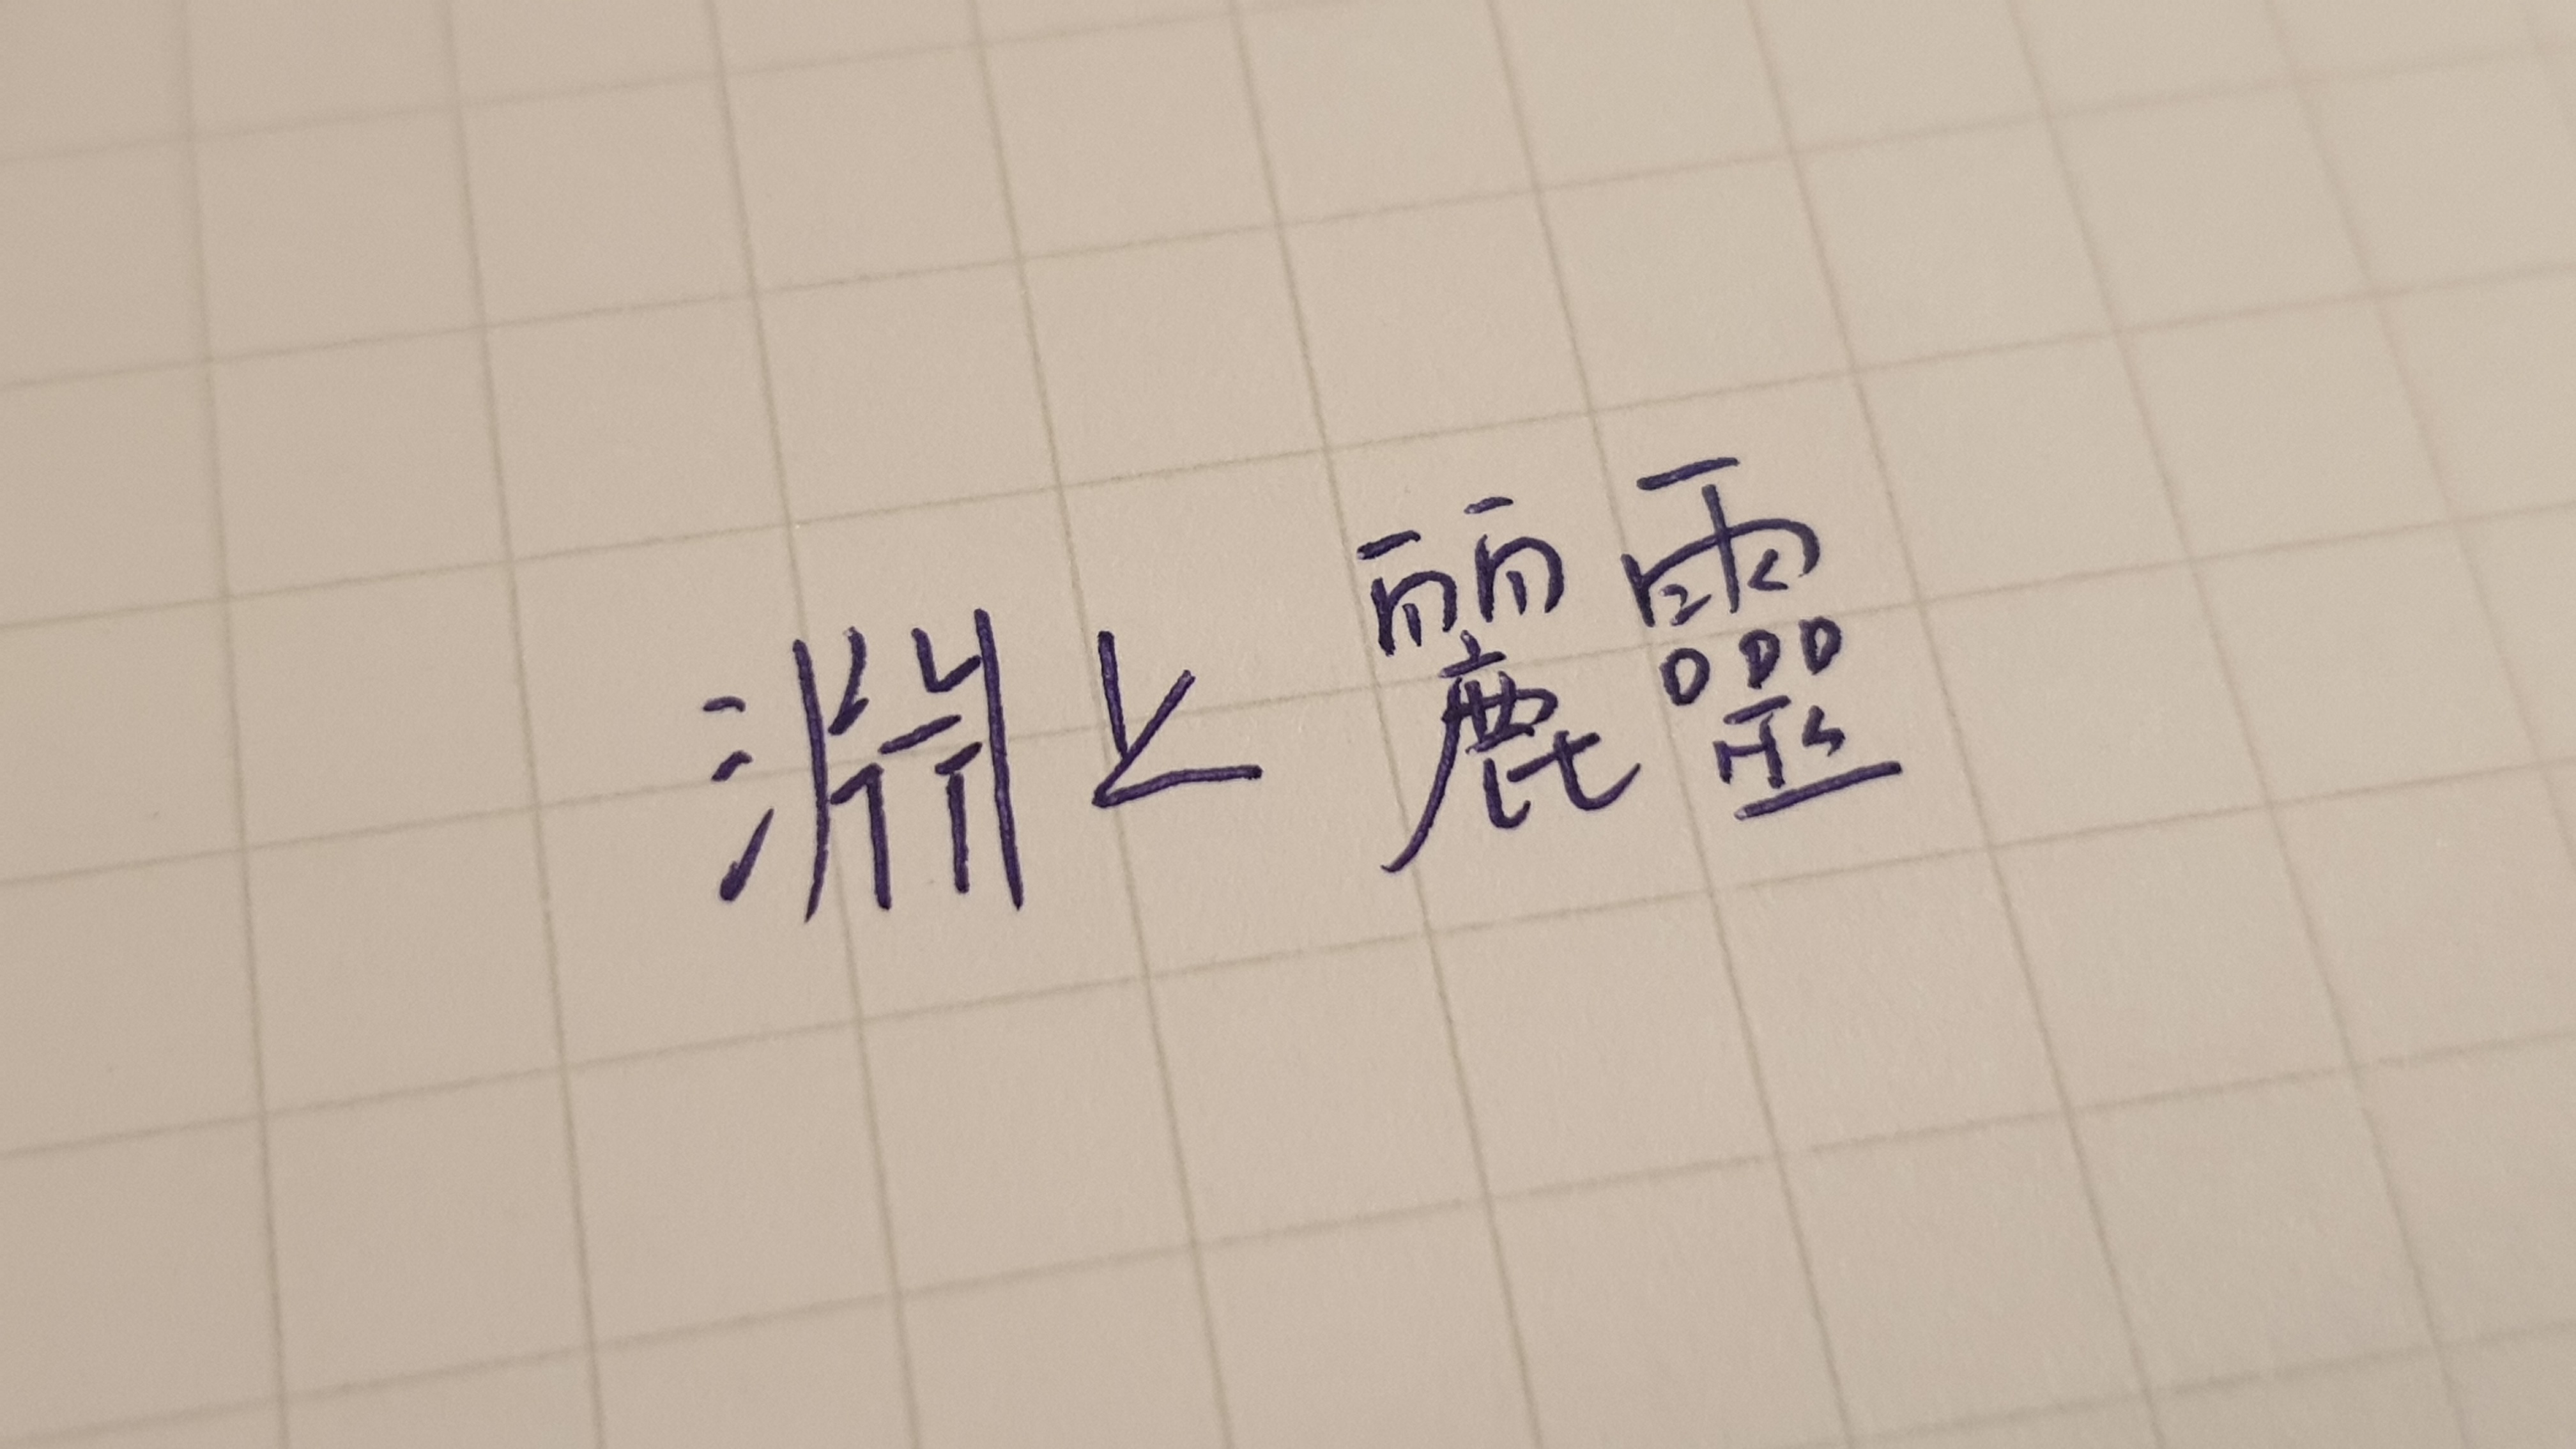 淵と麗靈